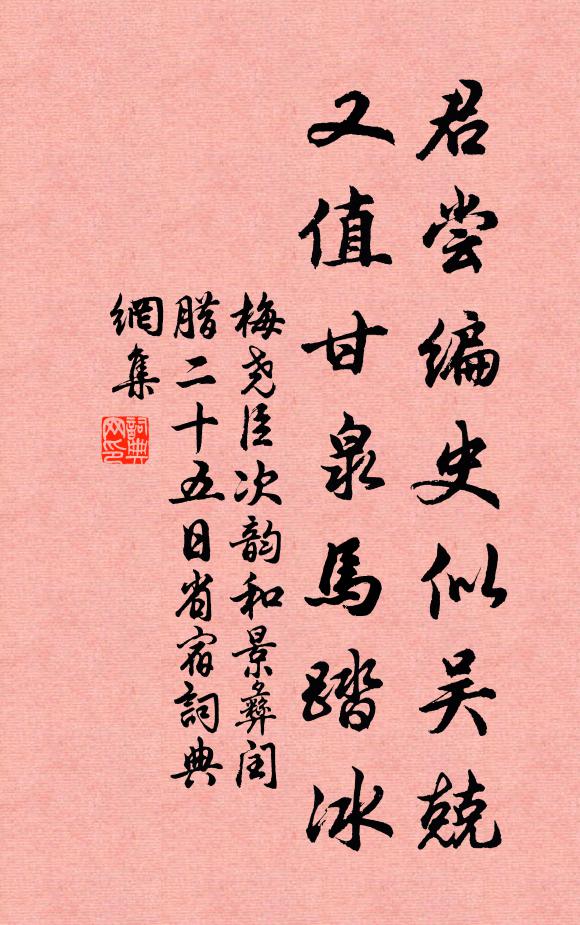 君尝编史似吴兢
又值甘泉馬踏冰
梅尧臣次韵和景彝闰
腊二十五日省宿詞典
網集
詞典网印